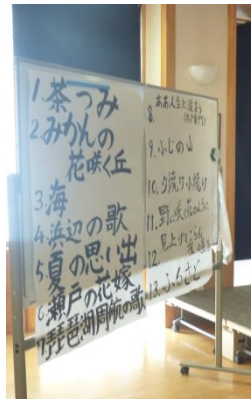 1.茶つみ
2.みかんの
花咲く丘
3.海
4.浜辺の歌
5.夏の思い出
6.瀬戸の花嫁
7.琵琶湖周航の歌
8.ああ人生に涙あり
(水戸黄門)
9.ふじの山
10.夕焼け小焼け
11.野に咲く花のように
12.見上げてごらん
夜の星を
13.ふるさと